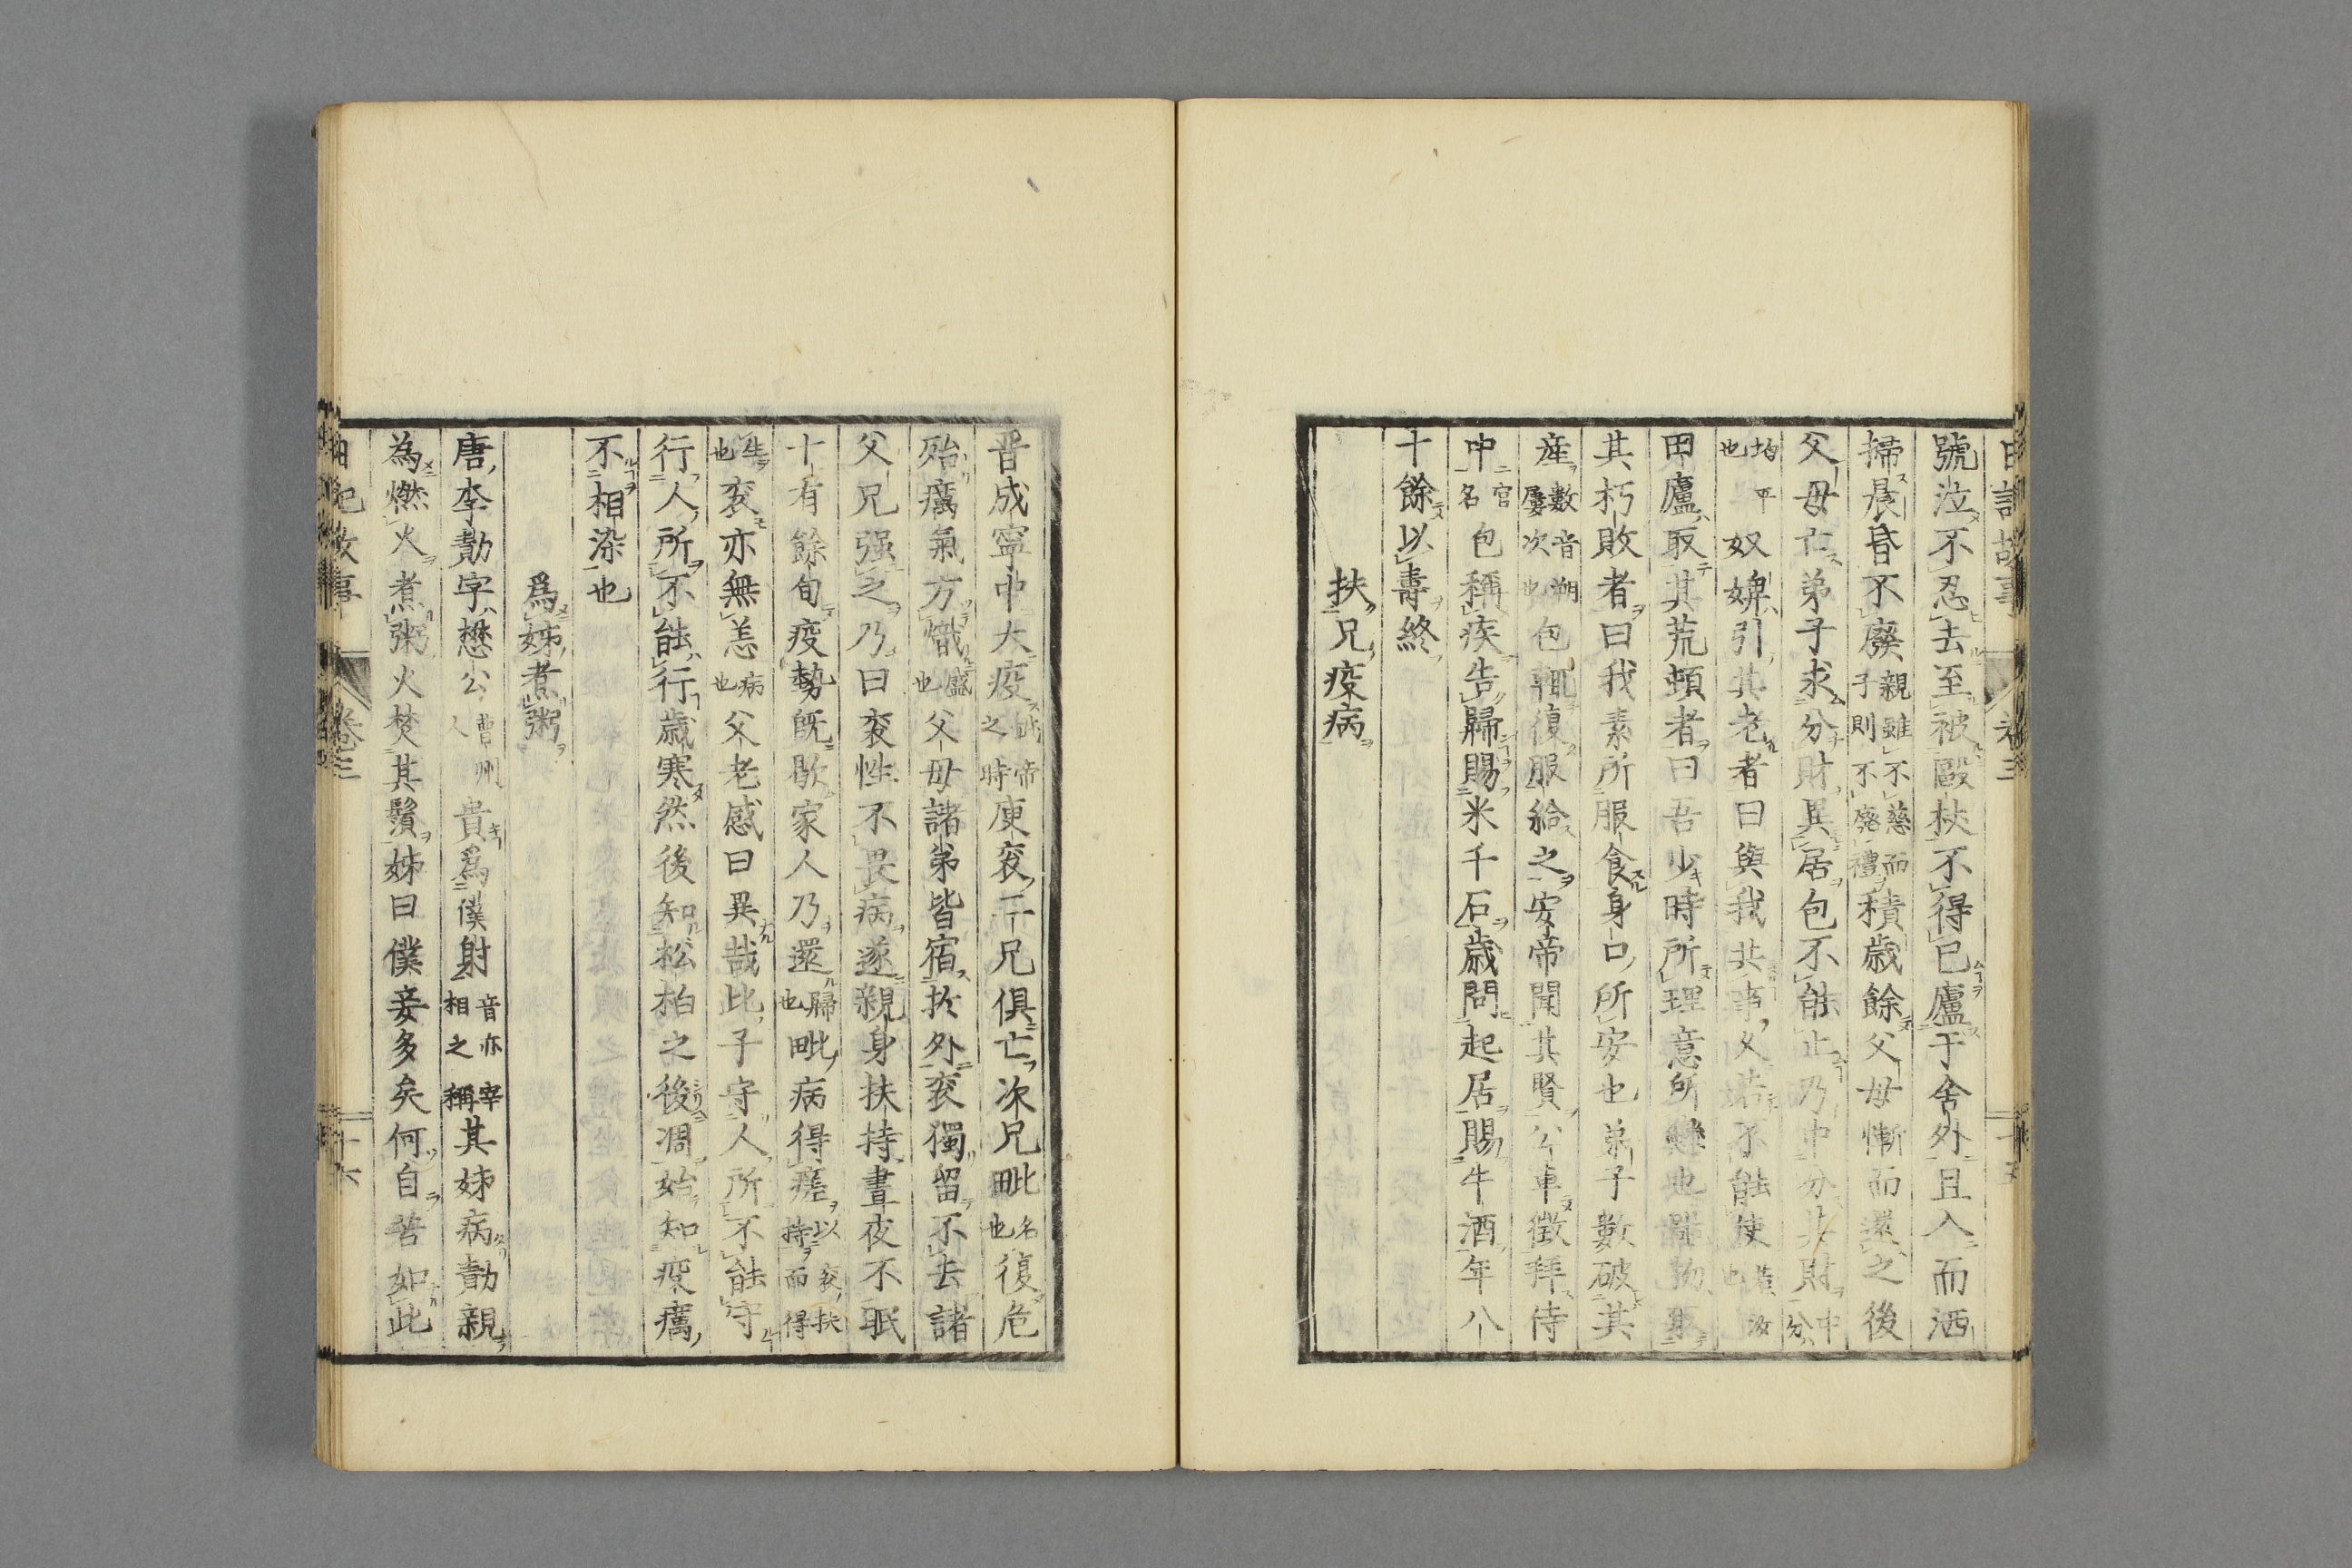 號泣不忍去至被毆杖不得已廬于舍外且入而洒
掃晨昏不廢親雖不慈而子則不廢禮積歲餘父母慚而還之後
父母亡弟子求分財異居包不能止乃中分其財中分
均平也奴婢引其老者曰與我共事久若不能使若汝也
田廬取其荒頓者曰吾少時所理意所戀也器物取
其朽敗者曰我素所服食身口所安也弟子數破其
產數音朔屢次也包輒復服給之安帝聞其賢公車徵拜侍
中官名包稱疾告歸賜米千石歲問起居賜牛酒年八
十餘以壽終
扶兄疫病
晋成寧中大疫武帝之時庾袞二兄俱亡次兄毗名也復危
殆癘氣方熾盛也父母諸弟皆宿於外袞獨留不去諸
父兄强之乃曰袞性不畏病遂親身扶持晝夜不眠
十有餘旬疫勢既歇家人乃還歸也毗病得瘥以袞扶持而得
生也袞亦無恙病也父老感曰異哉此子守人所不能守
行人所不能行歲寒然後知松柏之後凋始知疫癘
不相染也
爲姊煮粥
唐李勣字懋公曹州人貴爲僕射音亦宰相之稱其姊病勣親
為燃火煮粥火焚其鬚姊曰僕妾多矣何自苦如此
日記故事 卷三 十六